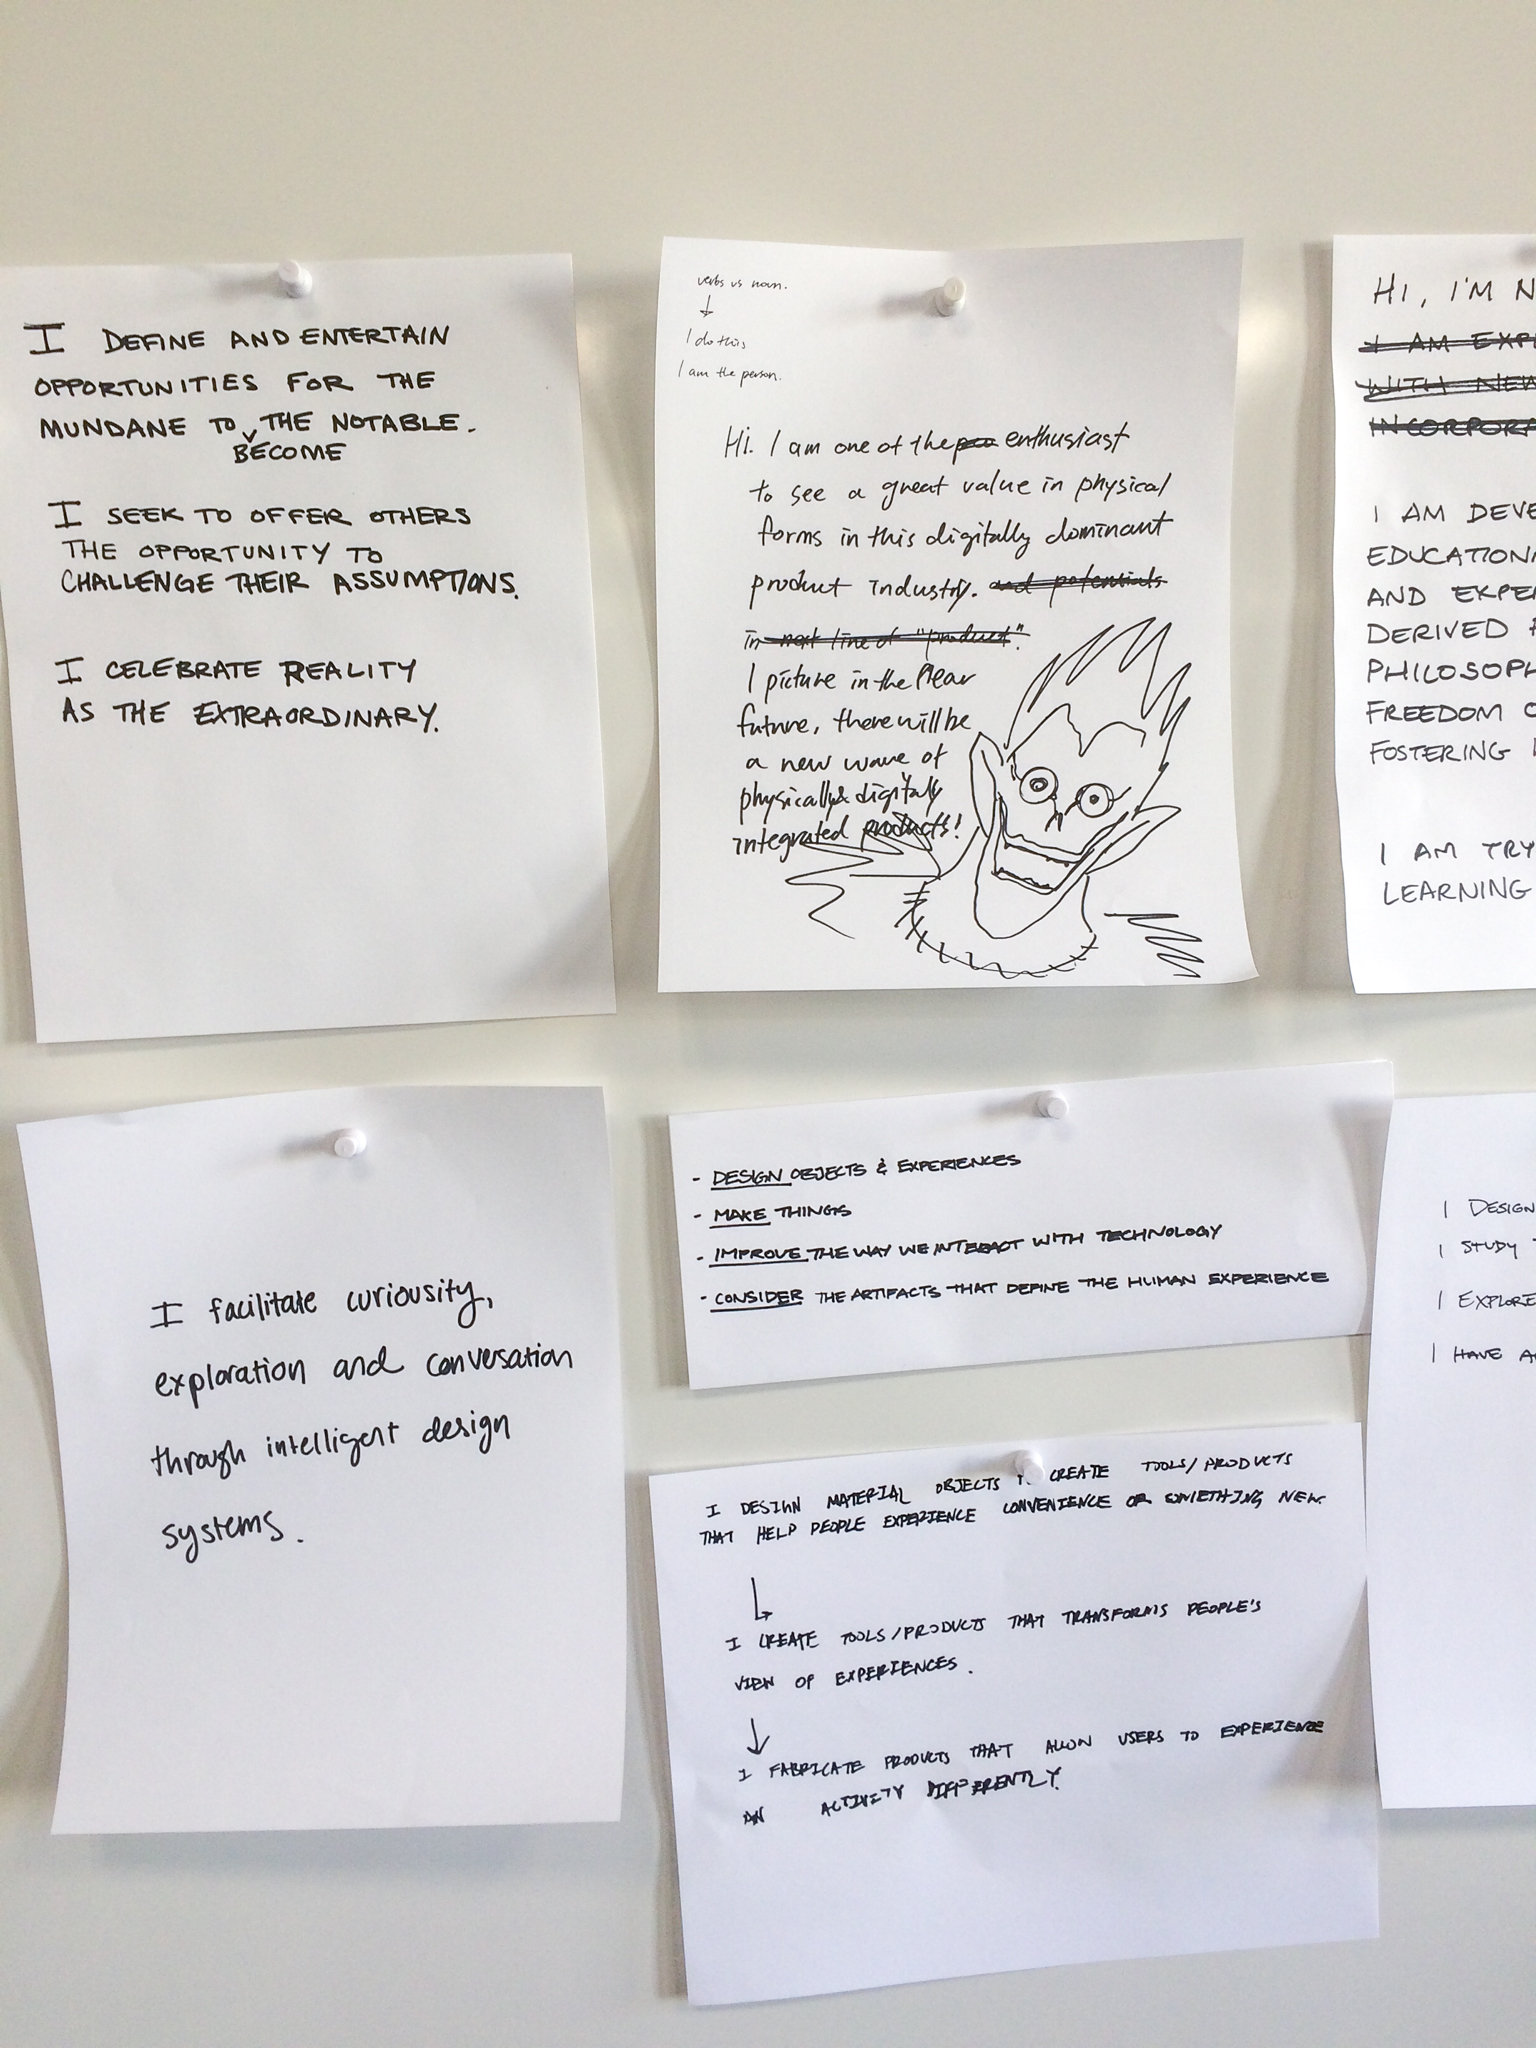 I DEFINE AND ENTERTAIN
OPPORTUNITIES FOR THE
MUNDANE TO THE NOTABLE.
BECOME
I SEEK TO OFFER OTHERS
THE OPPORTUNITY TO
CHALLENGE THEIR ASSUMPTIONS.
I CELEBRATE REALITY
AS THE EXTRAORDINARY.
verbs vs noun.
I do this
I am the person.
Hi. I am one of the enthusiast
to see a great value in physical
forms in this digitally dominant
product industry. and potentials
in next line of "product".
I picture in the near
future, there will be
a new wave of
physically & digitally
integrated products!
HI, I'M N
I AM EXP
WITH NEW
INCORPORA
I AM DEVE
EDUCATION
AND EXPE
DERIVED
PHILOSOPH
FREEDOM O
FOSTERING
I AM TRY
LEARNING
I facilitate curiousity,
exploration and conversation
through intelligent design
systems.
- DESIGN OBJECTS & EXPERIENCES
- MAKE THINGS
- IMPROVE THE WAY WE INTERACT WITH TECHNOLOGY
- CONSIDER THE ARTIFACTS THAT DEFINE THE HUMAN EXPERIENCE
I DESIGN
I STUDY
I EXPLORE
I HAVE
I DESIGN MATERIAL OBJECTS CREATE TOOLS/PRODUCTS
THAT HELP PEOPLE EXPERIENCE CONVENIENCE OR SOMETHING NEW.
I CREATE TOOLS/PRODUCTS THAT TRANSFORMS PEOPLE'S
VIEW OF EXPERIENCES.
I FABRICATE PRODUCTS THAT ALLOW USERS TO EXPERIENCE
AN ACTIVITY DIFFERENTLY.